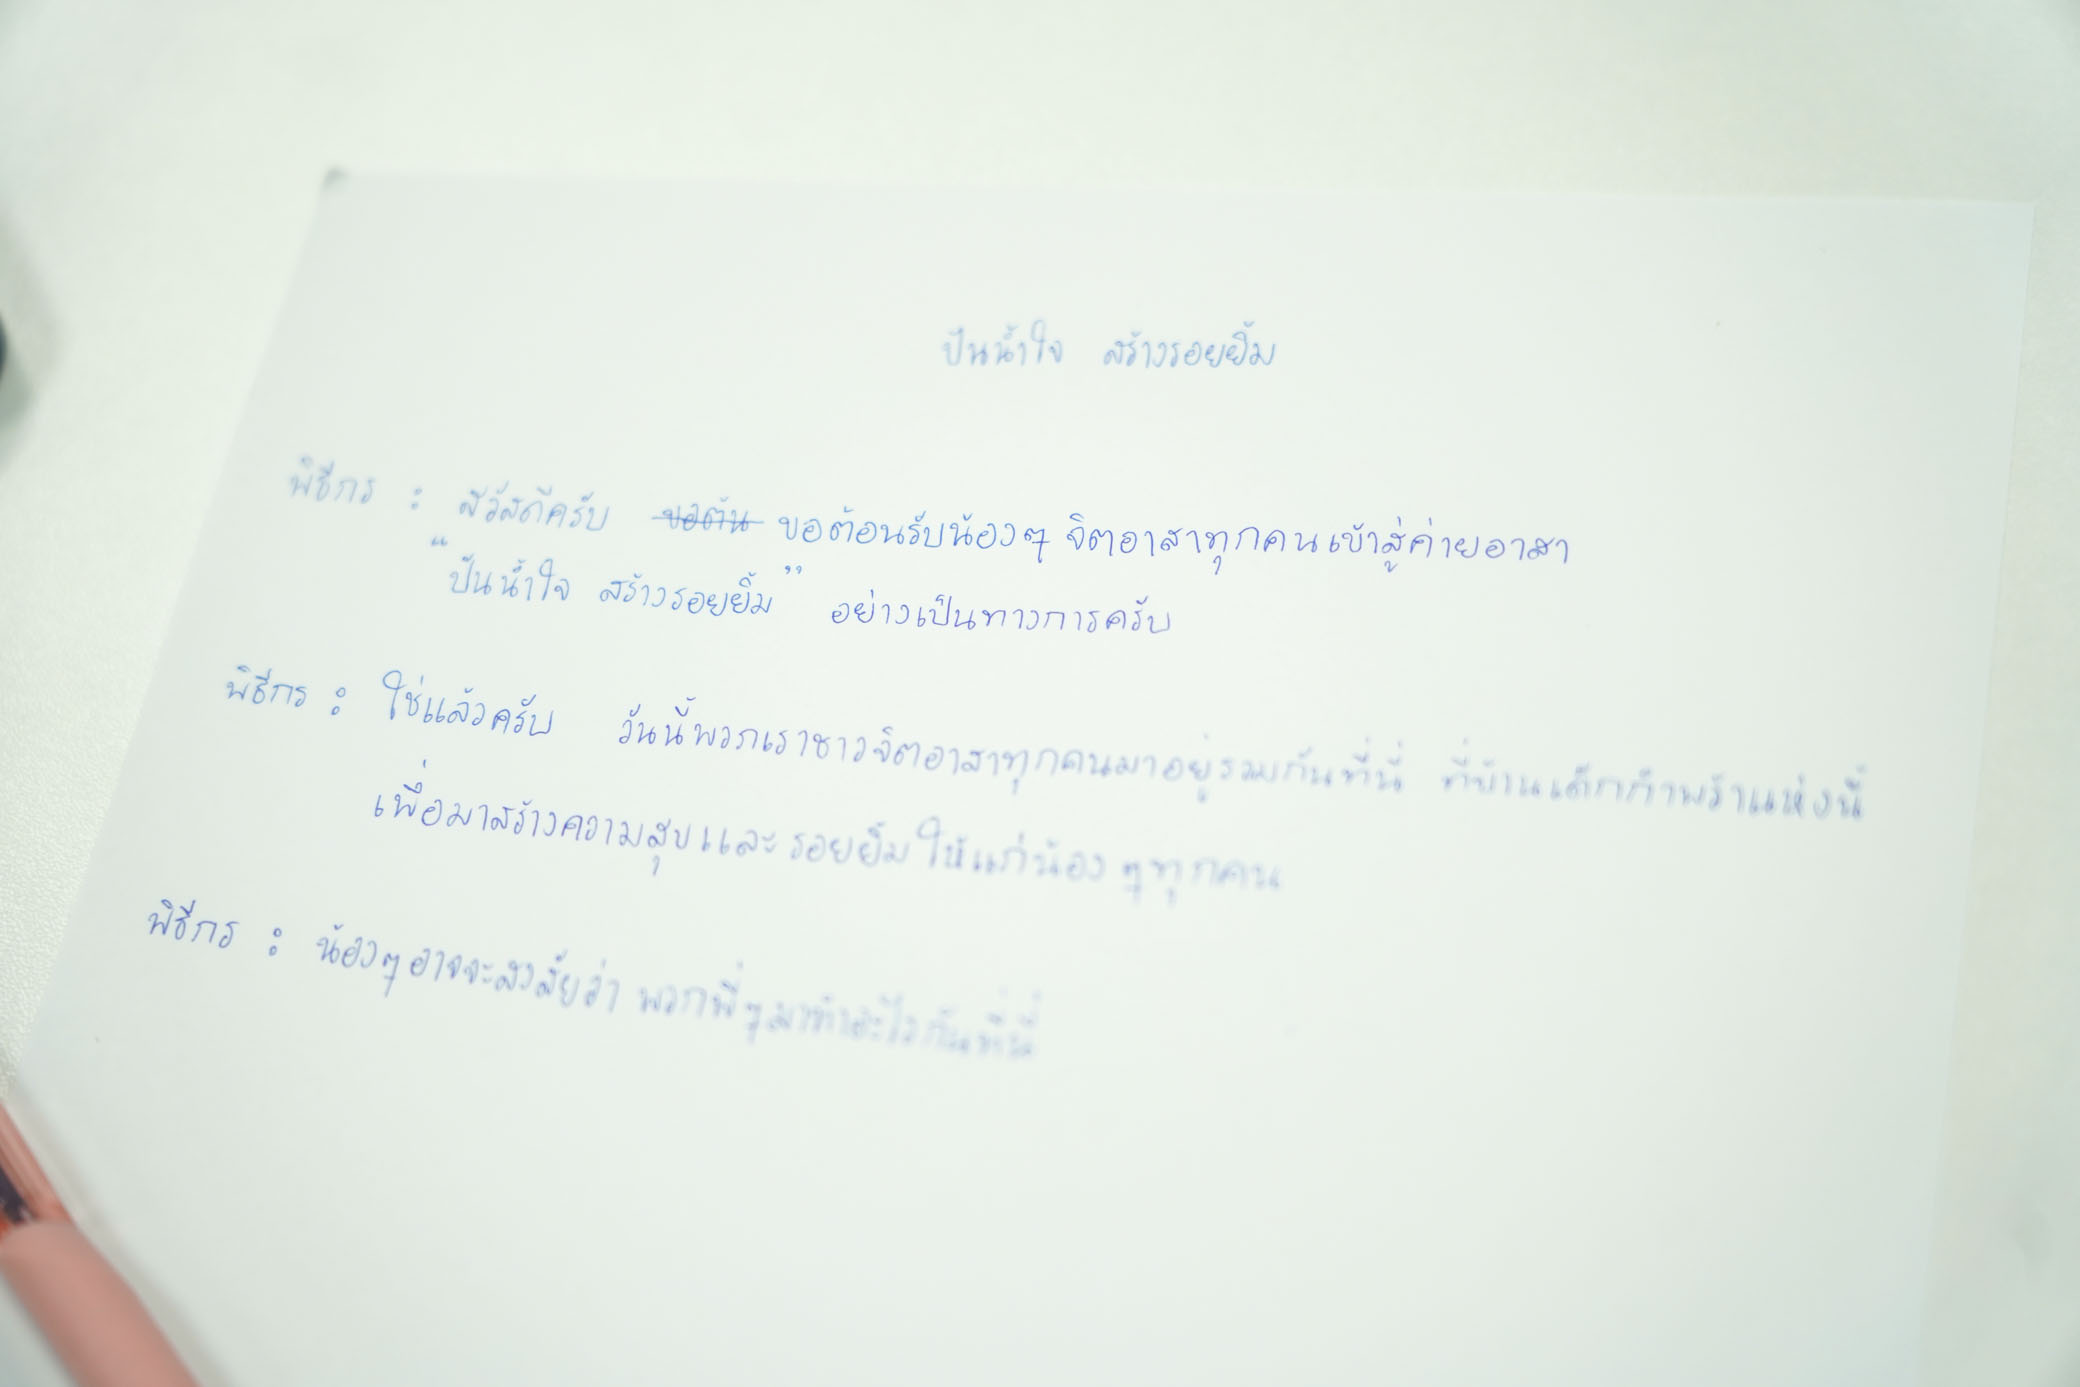 ปันน้ำใจ สร้างรอยยิ้ม
พิธีกร : สวัสดีครับ ขอต้น ขอต้อนรับน้องๆ จิตอาสาทุกคนเข้าสู่ค่ายอาสา
"ปันน้ำใจ สร้างรอยยิ้ม" อย่างเป็นทางการครับ
พิธีกร : ใช่แล้วครับ วันนี้พวกเราชาวจิตอาสาทุกคนมาอยู่รวมกันที่นี่ ที่บ้านเด็กกำพร้าแห่งนี้
เพื่อมาสร้างความสุขและรอยยิ้มให้แก่น้องๆทุกคน
พิธีกร : น้องๆอาจจะสงสัยว่า พวกพี่ๆมาทำอะไรกันที่นี่